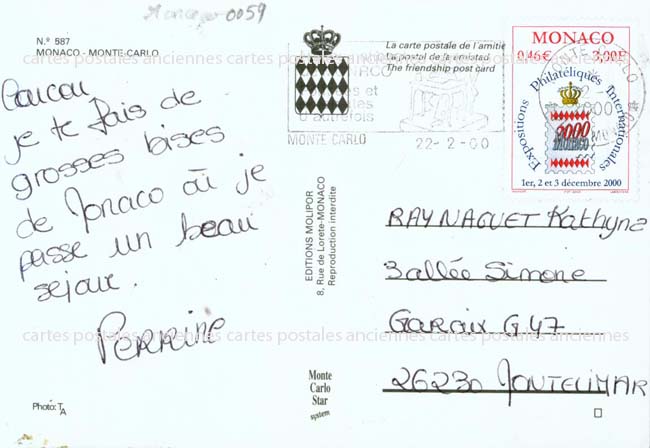 Monaco 0059
N.º 587
MONACO - MONTE-CARLO
La carte postale de l'amitié
La postal de la amistad
The friendship post card
MONTE CARLO
22-2-00
d'autrefois
MONACO
0,46€ 3,00F
Expositions Philatéliques Internationales
2000
MONACO
1er, 2 et 3 décembre 2000
Coucou
je te fais de
grosses bises
de Monaco où je
passe un beau
sejour.
PERRINE
EDITIONS MOLIPOR
8, Rue de Lorete-MONACO
Reproduction interdite
RAYNAGUET Kathyne
3 allée Simone
Garaix G.47
26230 MONTELIMAR
cartes postales anciennes cartes postales anciennes cartes postales anciennes
cartes postales anciennes cartes postales anciennes cartes postales anciennes
Monte
Carlo
Star
system
Photo: TA